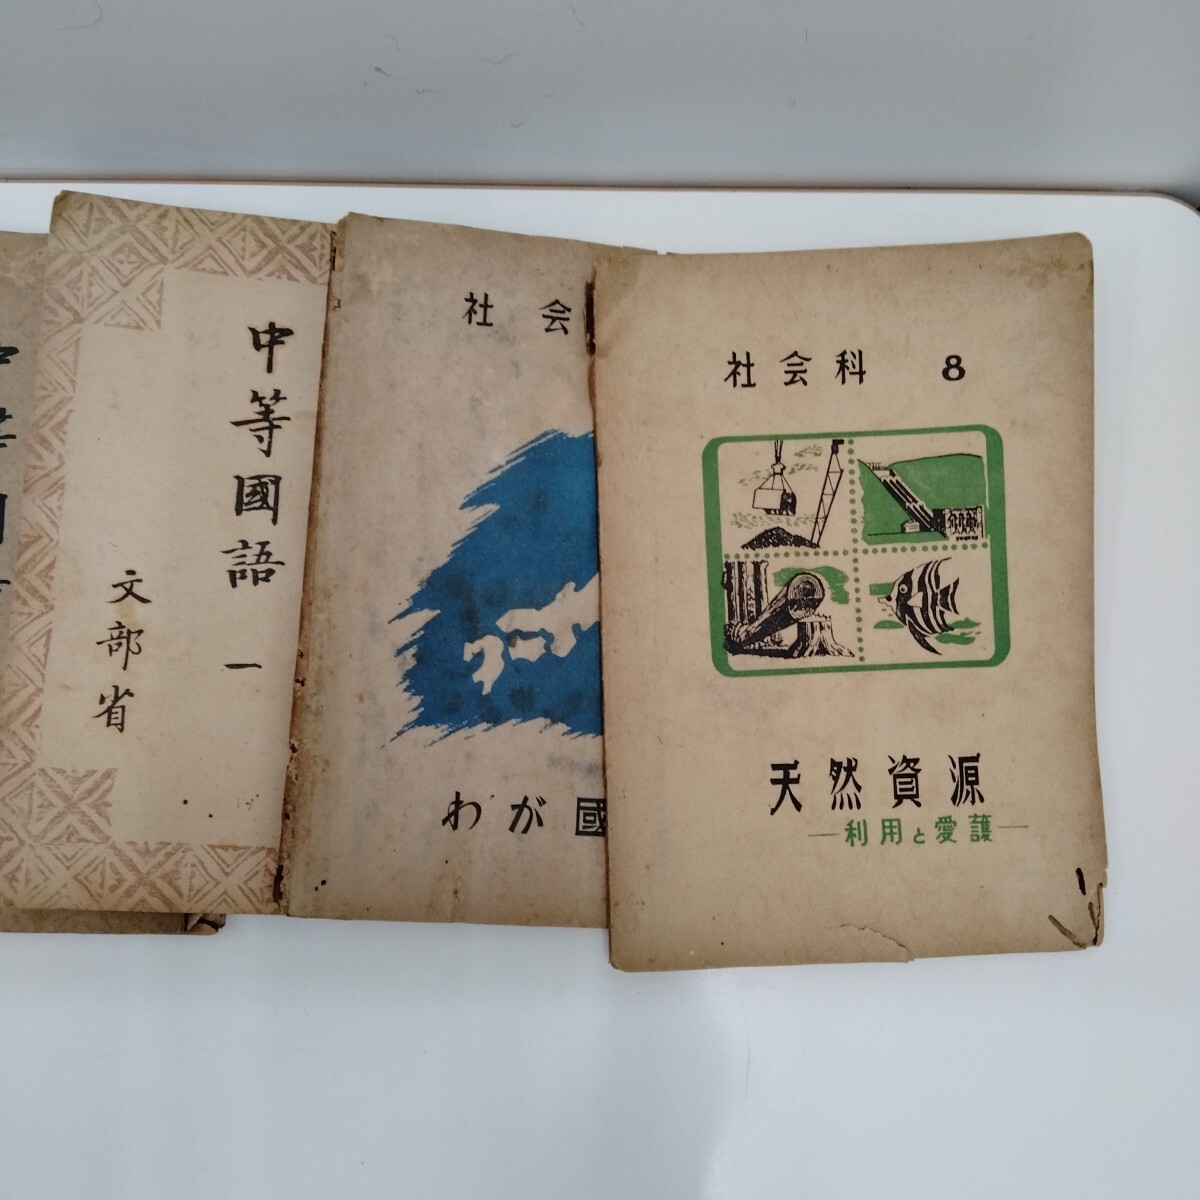 中等國語 一
文部省
社会
わが國
社会科 8
天然資源
―利用と愛護―